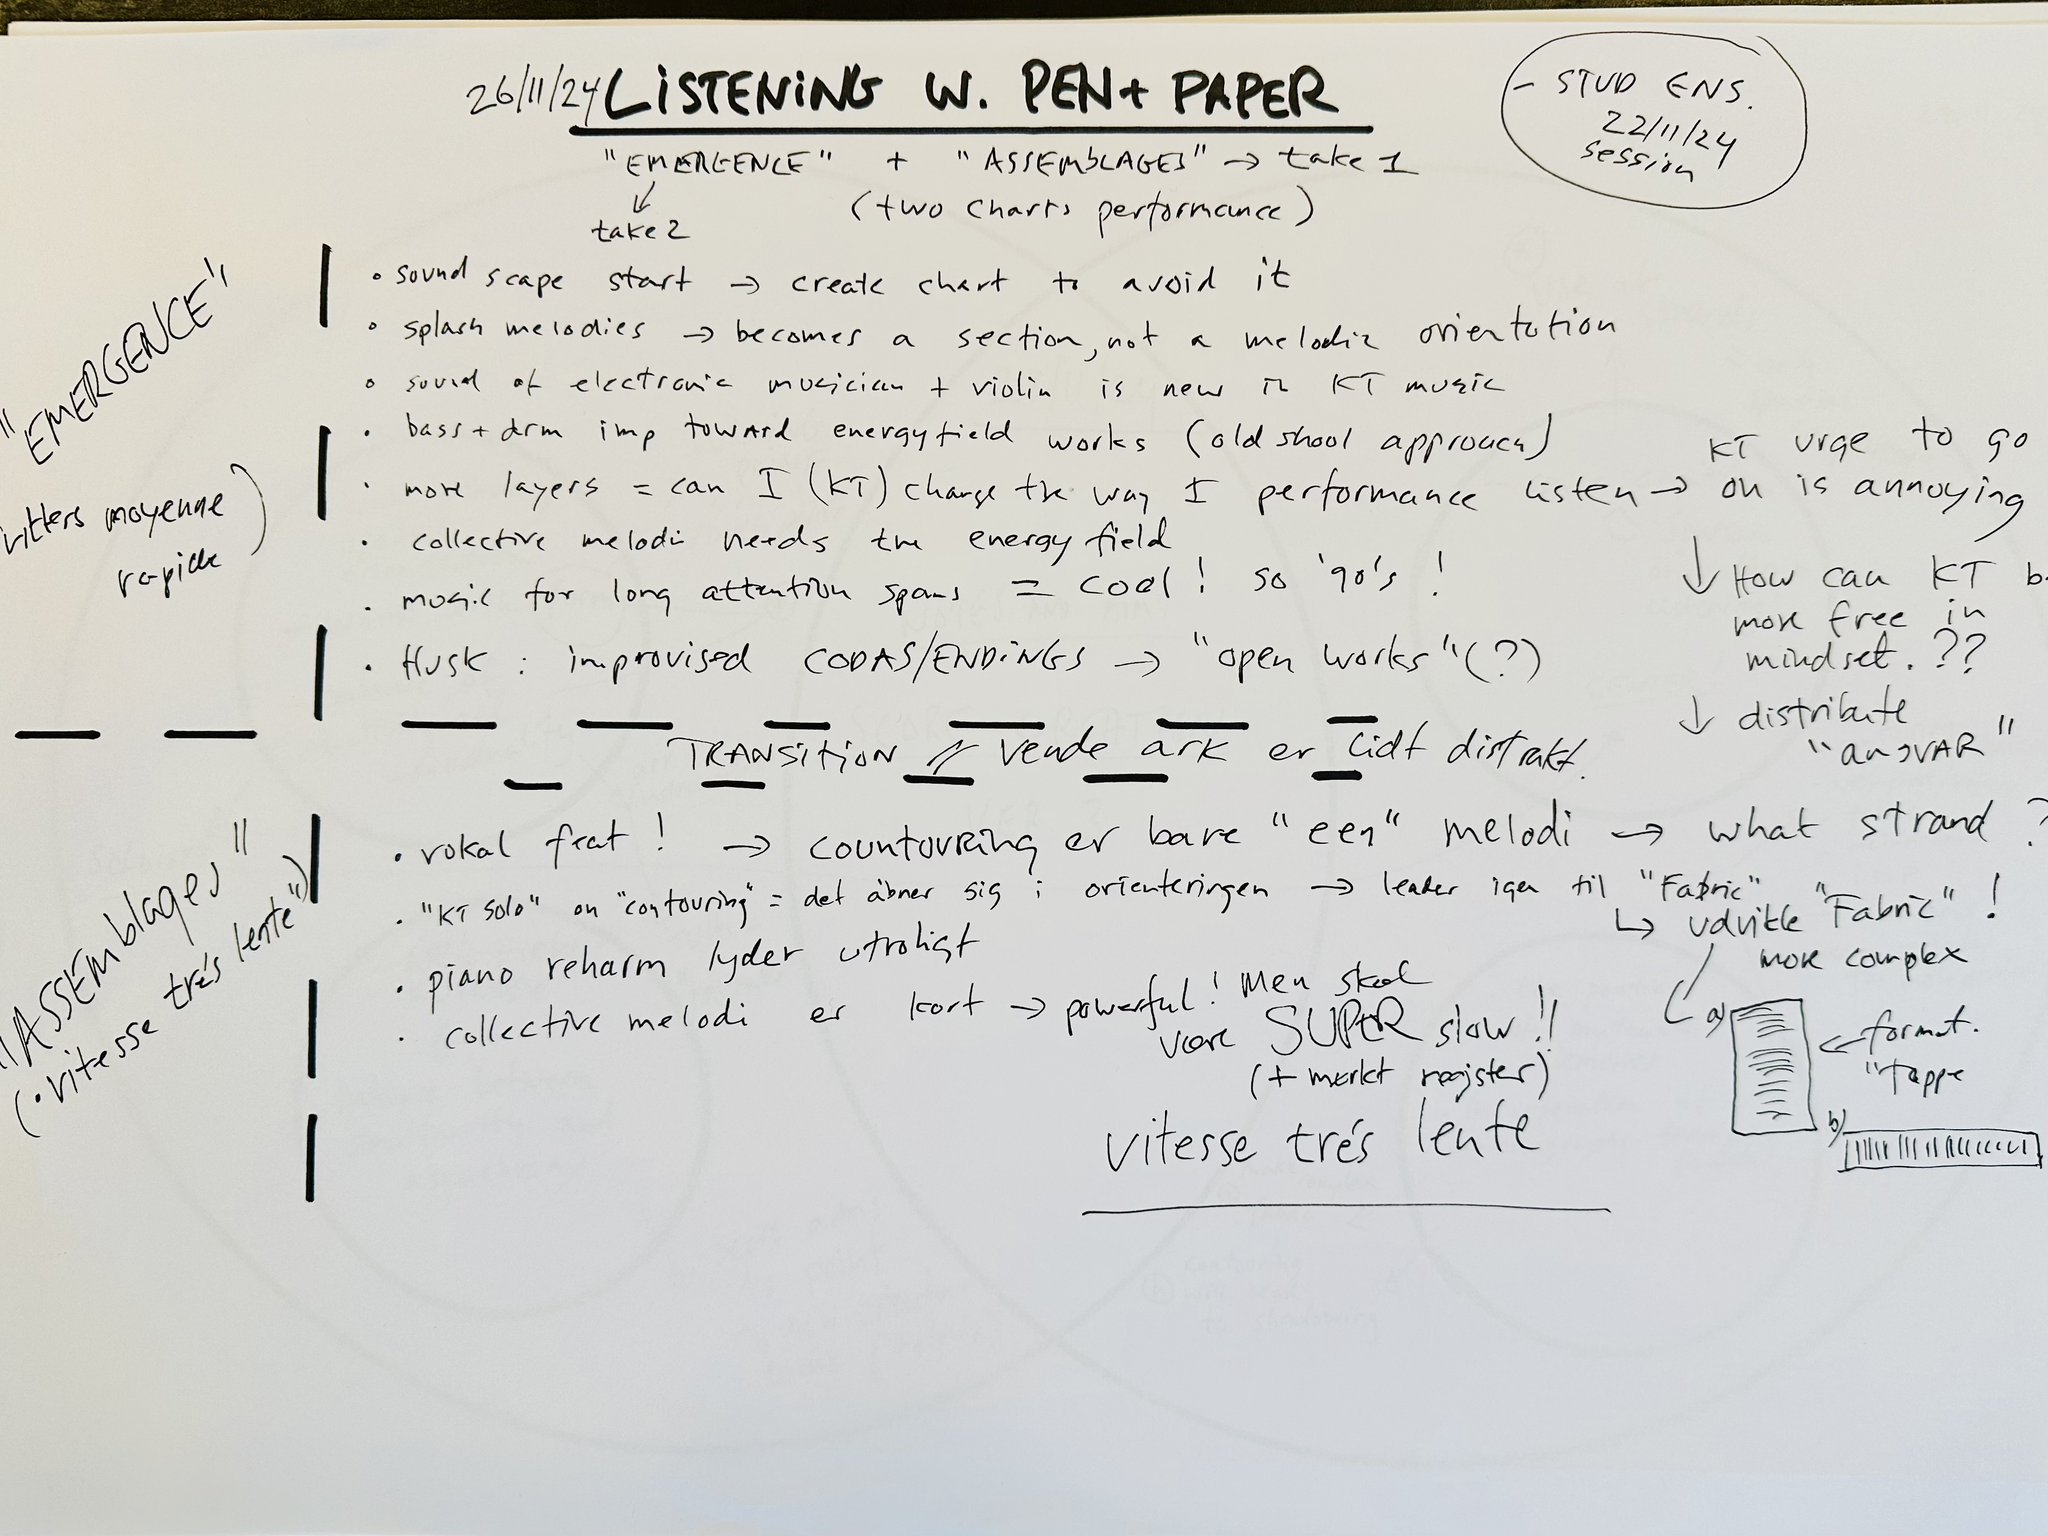 26/11/24 LISTENING W. PEN + PAPER
- STUD ENS.
22/11/24
session
"EMERGENCE" + "ASSEMBLAGES" → take 1
↓
take 2
(two charts performance)
"EMERGENCE"
moyenne
rapide)
• sound scape start → create chart to avoid it
• splash melodies → becomes a section, not a melodic orientation
• sound of electronic musician + violin is new in KT music
• bass + drm imp toward energyfield works (old skool approach)
• more layers = can I (KT) change the way I performance listen → KT urge to go
on is annoying
• collective melodi needs the energy field
• music for long attention spans = cool! so '90's!
• Husk: improvised CODAS/ENDINGS → "open works" (?)
↓ How can KT b
more free in
mindset. ??
↓ distribute
"ansVAR"
TRANSITION // vende ark er lidt distrakt.
"ASSEmblages"
(• vitesse trés lente")
• vokal feat! → countouring er bare "een" melodi → what strand?
• "KT solo" on "contouring" = det åbner sig i orienteringen → leader igen til "Fabric"
↳ udvikle "Fabric"!
more complex
• piano reharm lyder utroligt
• collective melodi er kort → powerful! Men skal
være SUPER slow!!
(+ mørkt register)
vitesse trés lente
a)
← format.
"tæppe
b)